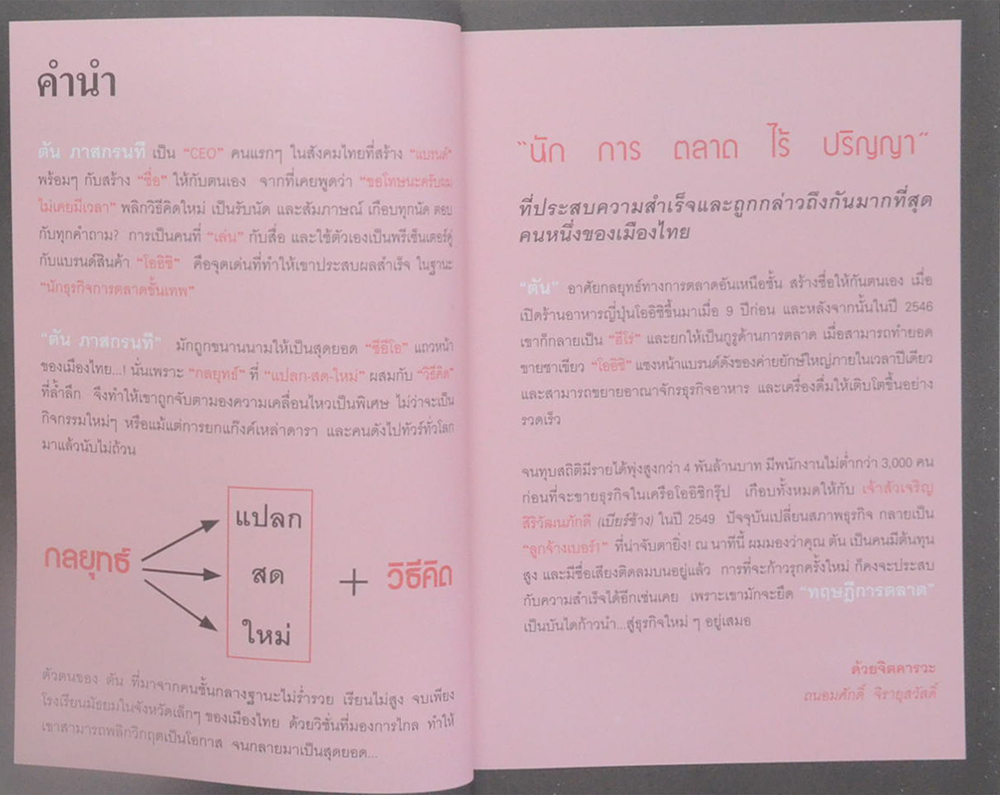 คำนำ
ตัน ภาสกรนที เป็น "CEO" คนแรกๆ ในสังคมไทยที่สร้าง "แบรนด์"
พร้อมๆ กับสร้าง "ชื่อ" ให้กับตนเอง จากที่เคยพูดว่า "ขอโทษนะครับผม
ไม่เคยมีเวลา" พลิกวิธีคิดใหม่ เป็นรับนัด และสัมภาษณ์ เกือบทุกนัด ตอบ
กับทุกคำถาม? การเป็นคนที่ "เล่น" กับสื่อ และใช้ตัวเองเป็นพรีเซ็นเตอร์คู่
กับแบรนด์สินค้า "โออิชิ" คือจุดเด่นที่ทำให้เขาประสบผลสำเร็จ ในฐานะ
"นักธุรกิจการตลาดชั้นเทพ"
"ตัน ภาสกรนที" มักถูกขนานนามให้เป็นสุดยอด "ซีอีโอ" แถวหน้า
ของเมืองไทย...! นั่นเพราะ "กลยุทธ์" ที่ "แปลก-สด-ใหม่" ผสมกับ "วิธีคิด"
ที่ล้ำลึก จึงทำให้เขาถูกจับตามองความเคลื่อนไหวเป็นพิเศษ ไม่ว่าจะเป็น
กิจกรรมใหม่ๆ หรือแม้แต่การยกแก๊งค์เหล่าดารา และคนดังไปทัวร์ทั่วโลก
มาแล้วนับไม่ถ้วน
กลยุทธ์
แปลก
สด
ใหม่
+ วิธีคิด
ตัวตนของ ตัน ที่มาจากคนชั้นกลางฐานะไม่ร่ำรวย เรียนไม่สูง จบเพียง
โรงเรียนมัธยมในจังหวัดเล็กๆ ของเมืองไทย ด้วยวิชั่นที่มองการไกล ทำให้
เขาสามารถพลิกวิกฤตเป็นโอกาส จนกลายมาเป็นสุดยอด...
"นัก การ ตลาด ไร้ ปริญญา"
ที่ประสบความสำเร็จและถูกกล่าวถึงกันมากที่สุด
คนหนึ่งของเมืองไทย
"ตัน" อาศัยกลยุทธ์ทางการตลาดอันเหนือชั้น สร้างชื่อให้กันตนเอง เมื่อ
เปิดร้านอาหารญี่ปุ่นโออิชิขึ้นมาเมื่อ 9 ปีก่อน และหลังจากนั้นในปี 2546
เขาก็กลายเป็น "ฮีโร่" และยกให้เป็นกูรูด้านการตลาด เมื่อสามารถทำยอด
ขายชาเขียว "โออิชิ" แซงหน้าแบรนด์ดังของค่ายยักษ์ใหญ่ภายในเวลาปีเดียว
และสามารถขยายอาณาจักรธุรกิจอาหาร และเครื่องดื่มให้เติบโตขึ้นอย่าง
รวดเร็ว
จนทุบสถิติมีรายได้พุ่งสูงกว่า 4 พันล้านบาท มีพนักงานไม่ต่ำกว่า 3,000 คน
ก่อนที่จะขายธุรกิจในเครือโออิชิกรุ๊ป เกือบทั้งหมดให้กับ เจ้าสัวเจริญ
สิริวัฒนภักดี (เบียร์ช้าง) ในปี 2549 ปัจจุบันเปลี่ยนสภาพธุรกิจ กลายเป็น
"ลูกจ้างเบอร์1" ที่น่าจับตายิ่ง! ณ นาทีนี้ ผมมองว่าคุณ ตัน เป็นคนมีต้นทุน
สูง และมีชื่อเสียงติดลมบนอยู่แล้ว การที่จะก้าวรุกครั้งใหม่ ก็คงจะประสบ
กับความสำเร็จได้อีกเช่นเคย เพราะเขามักจะยึด "ทฤษฎีการตลาด"
เป็นบันไดก้าวนำ...สู่ธุรกิจใหม่ ๆ อยู่เสมอ
ด้วยจิตคารวะ
ถนอมศักดิ์ จิรายุสวัสดิ์